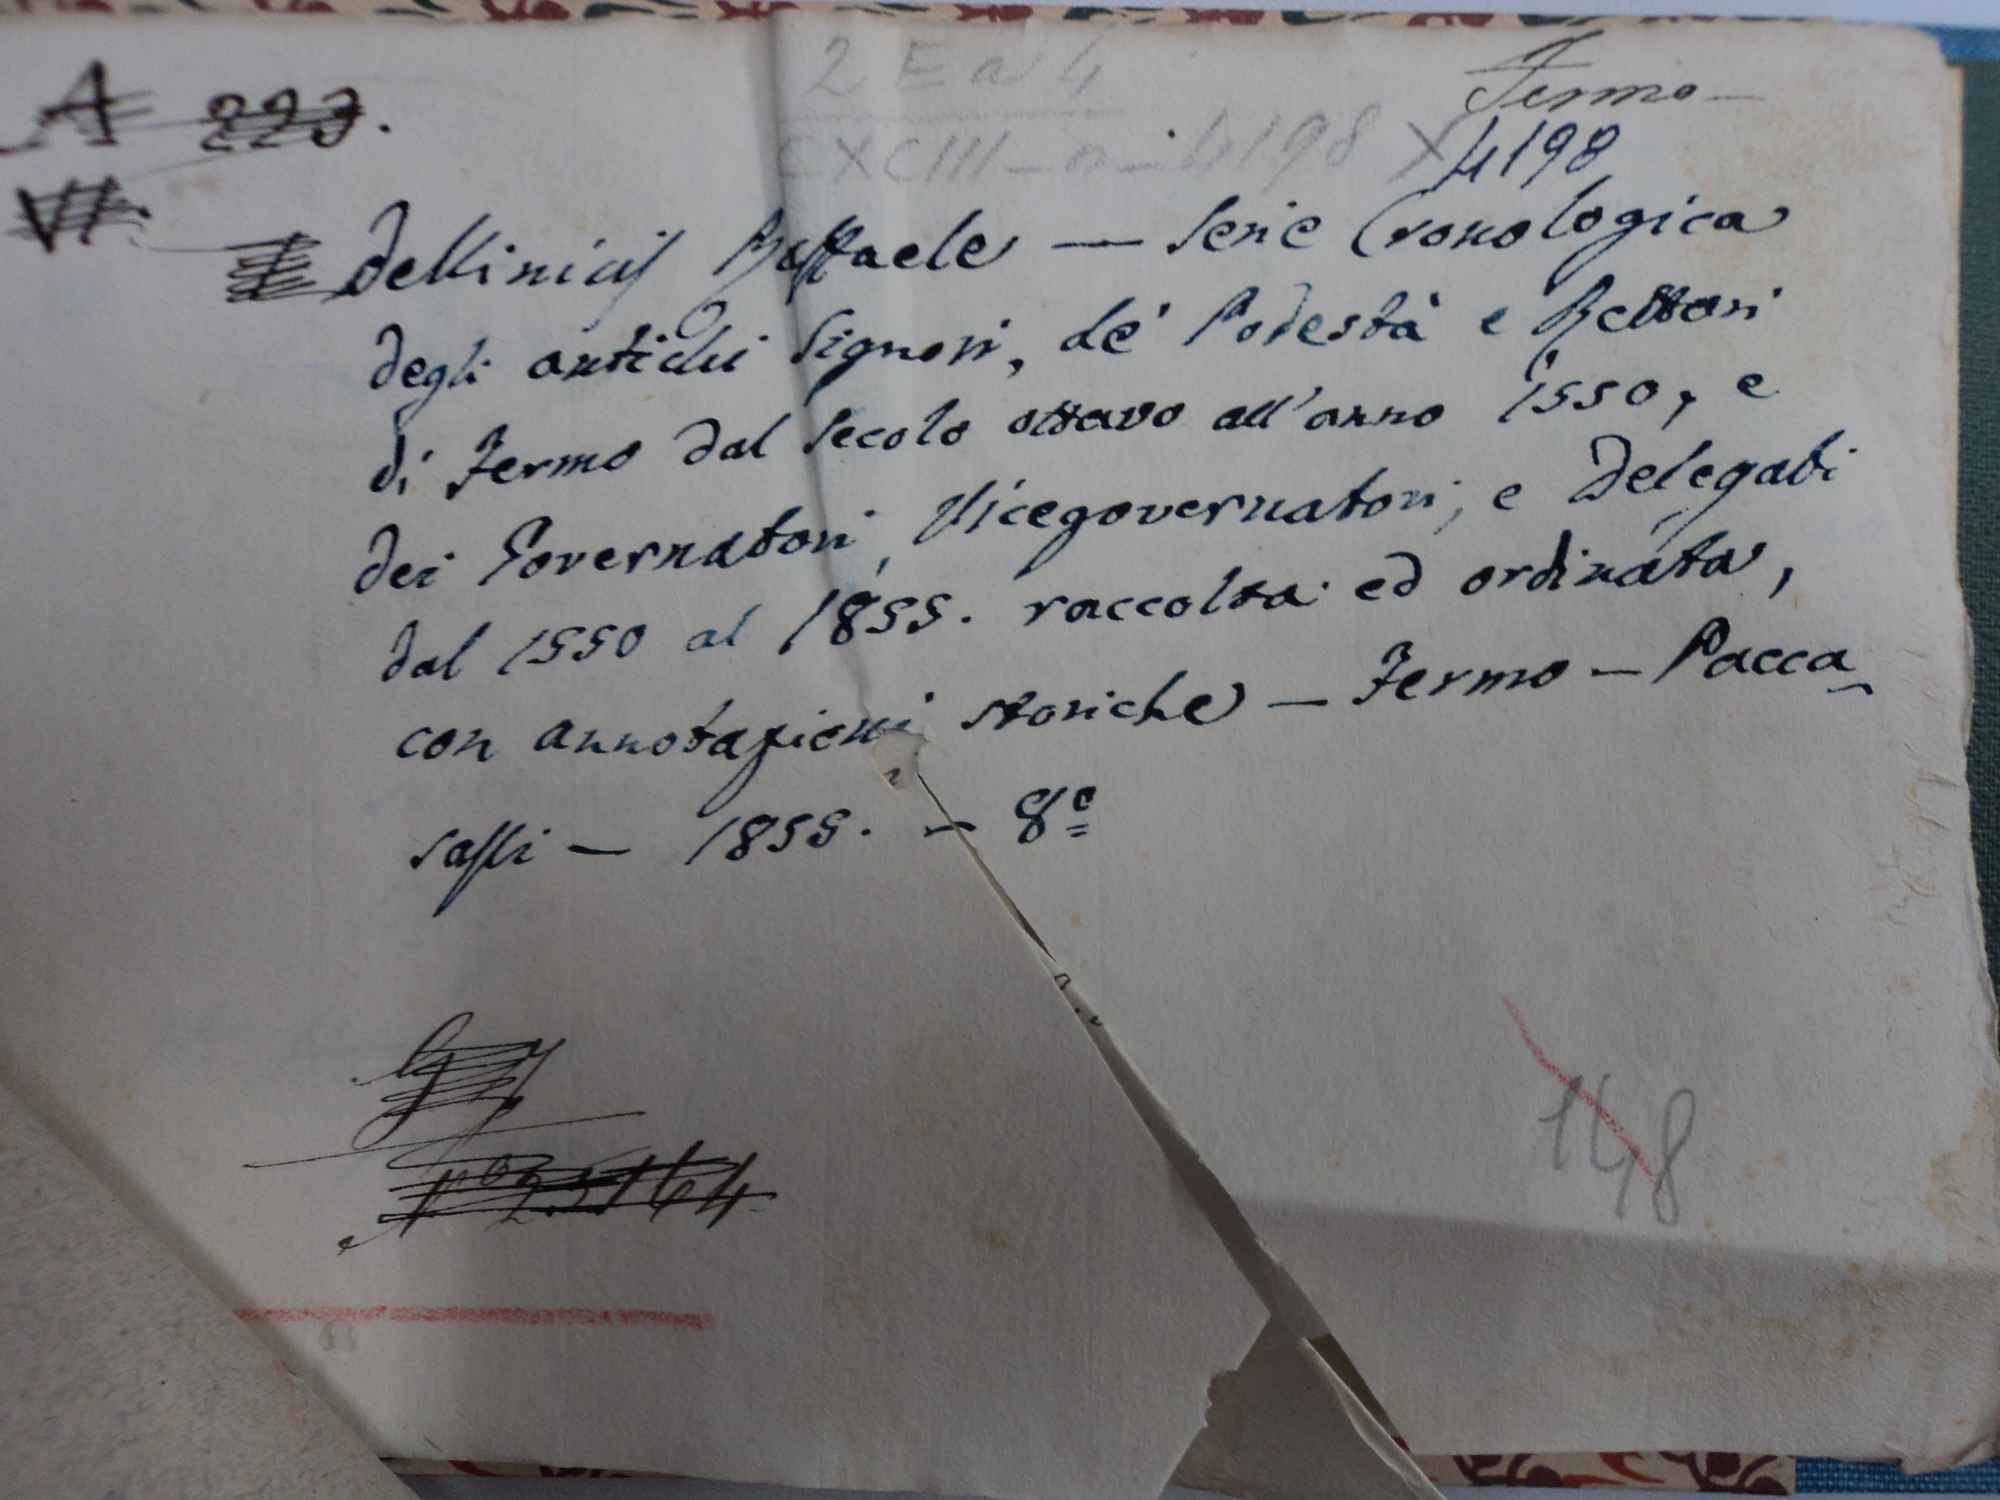 2 E a 4
Fermo —
A 223.
CXCIII - n - 4198 X
4198
VI
De Minicis Raffaele — Serie Cronologica
degli antichi Signori, de' Podestà e Rettori
di Fermo dal Secolo ottavo all'anno 1550, e
dei Governatori, Vicegovernatori, e Delegati
dal 1550 al 1855. raccolta ed ordinata,
con annotazioni storiche — Fermo — Pacca
sassi — 1855. — 8º
148
No 23164